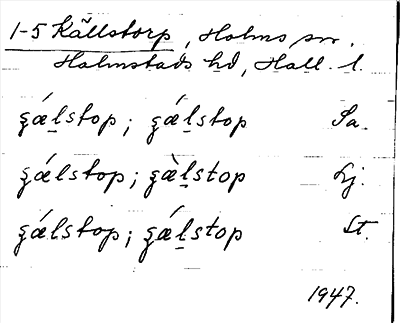 1-5 Källstorp, Holms sn.
Halmstads hd, Hall. l.
ʂǽl̠stop; ʂǽl̠stop Sa.
ʂǽlstop; ʂæ̀l̠stop Lj.
ʂǽlstop; ʂǽl̠stop St.
1947.